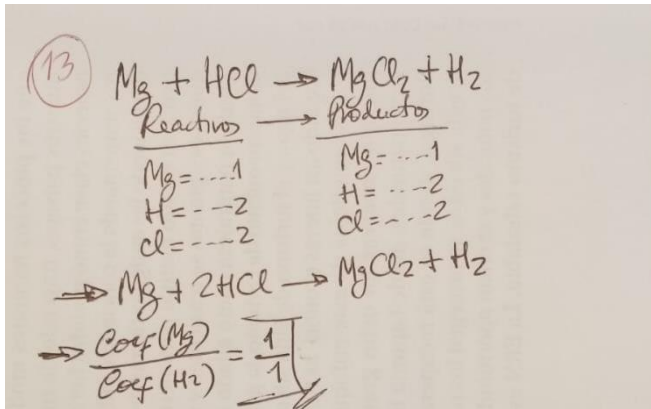 13
Mg + HCl → MgCl2 + H2
Reactivos → Productos
Mg = ....1 Mg = ....1
H = ----2 H = ....2
Cl = ----2 Cl = ....2
⇒ Mg + 2HCl → MgCl2 + H2
⇒ Coef(Mg) / Coef(H2) = 1 / 1